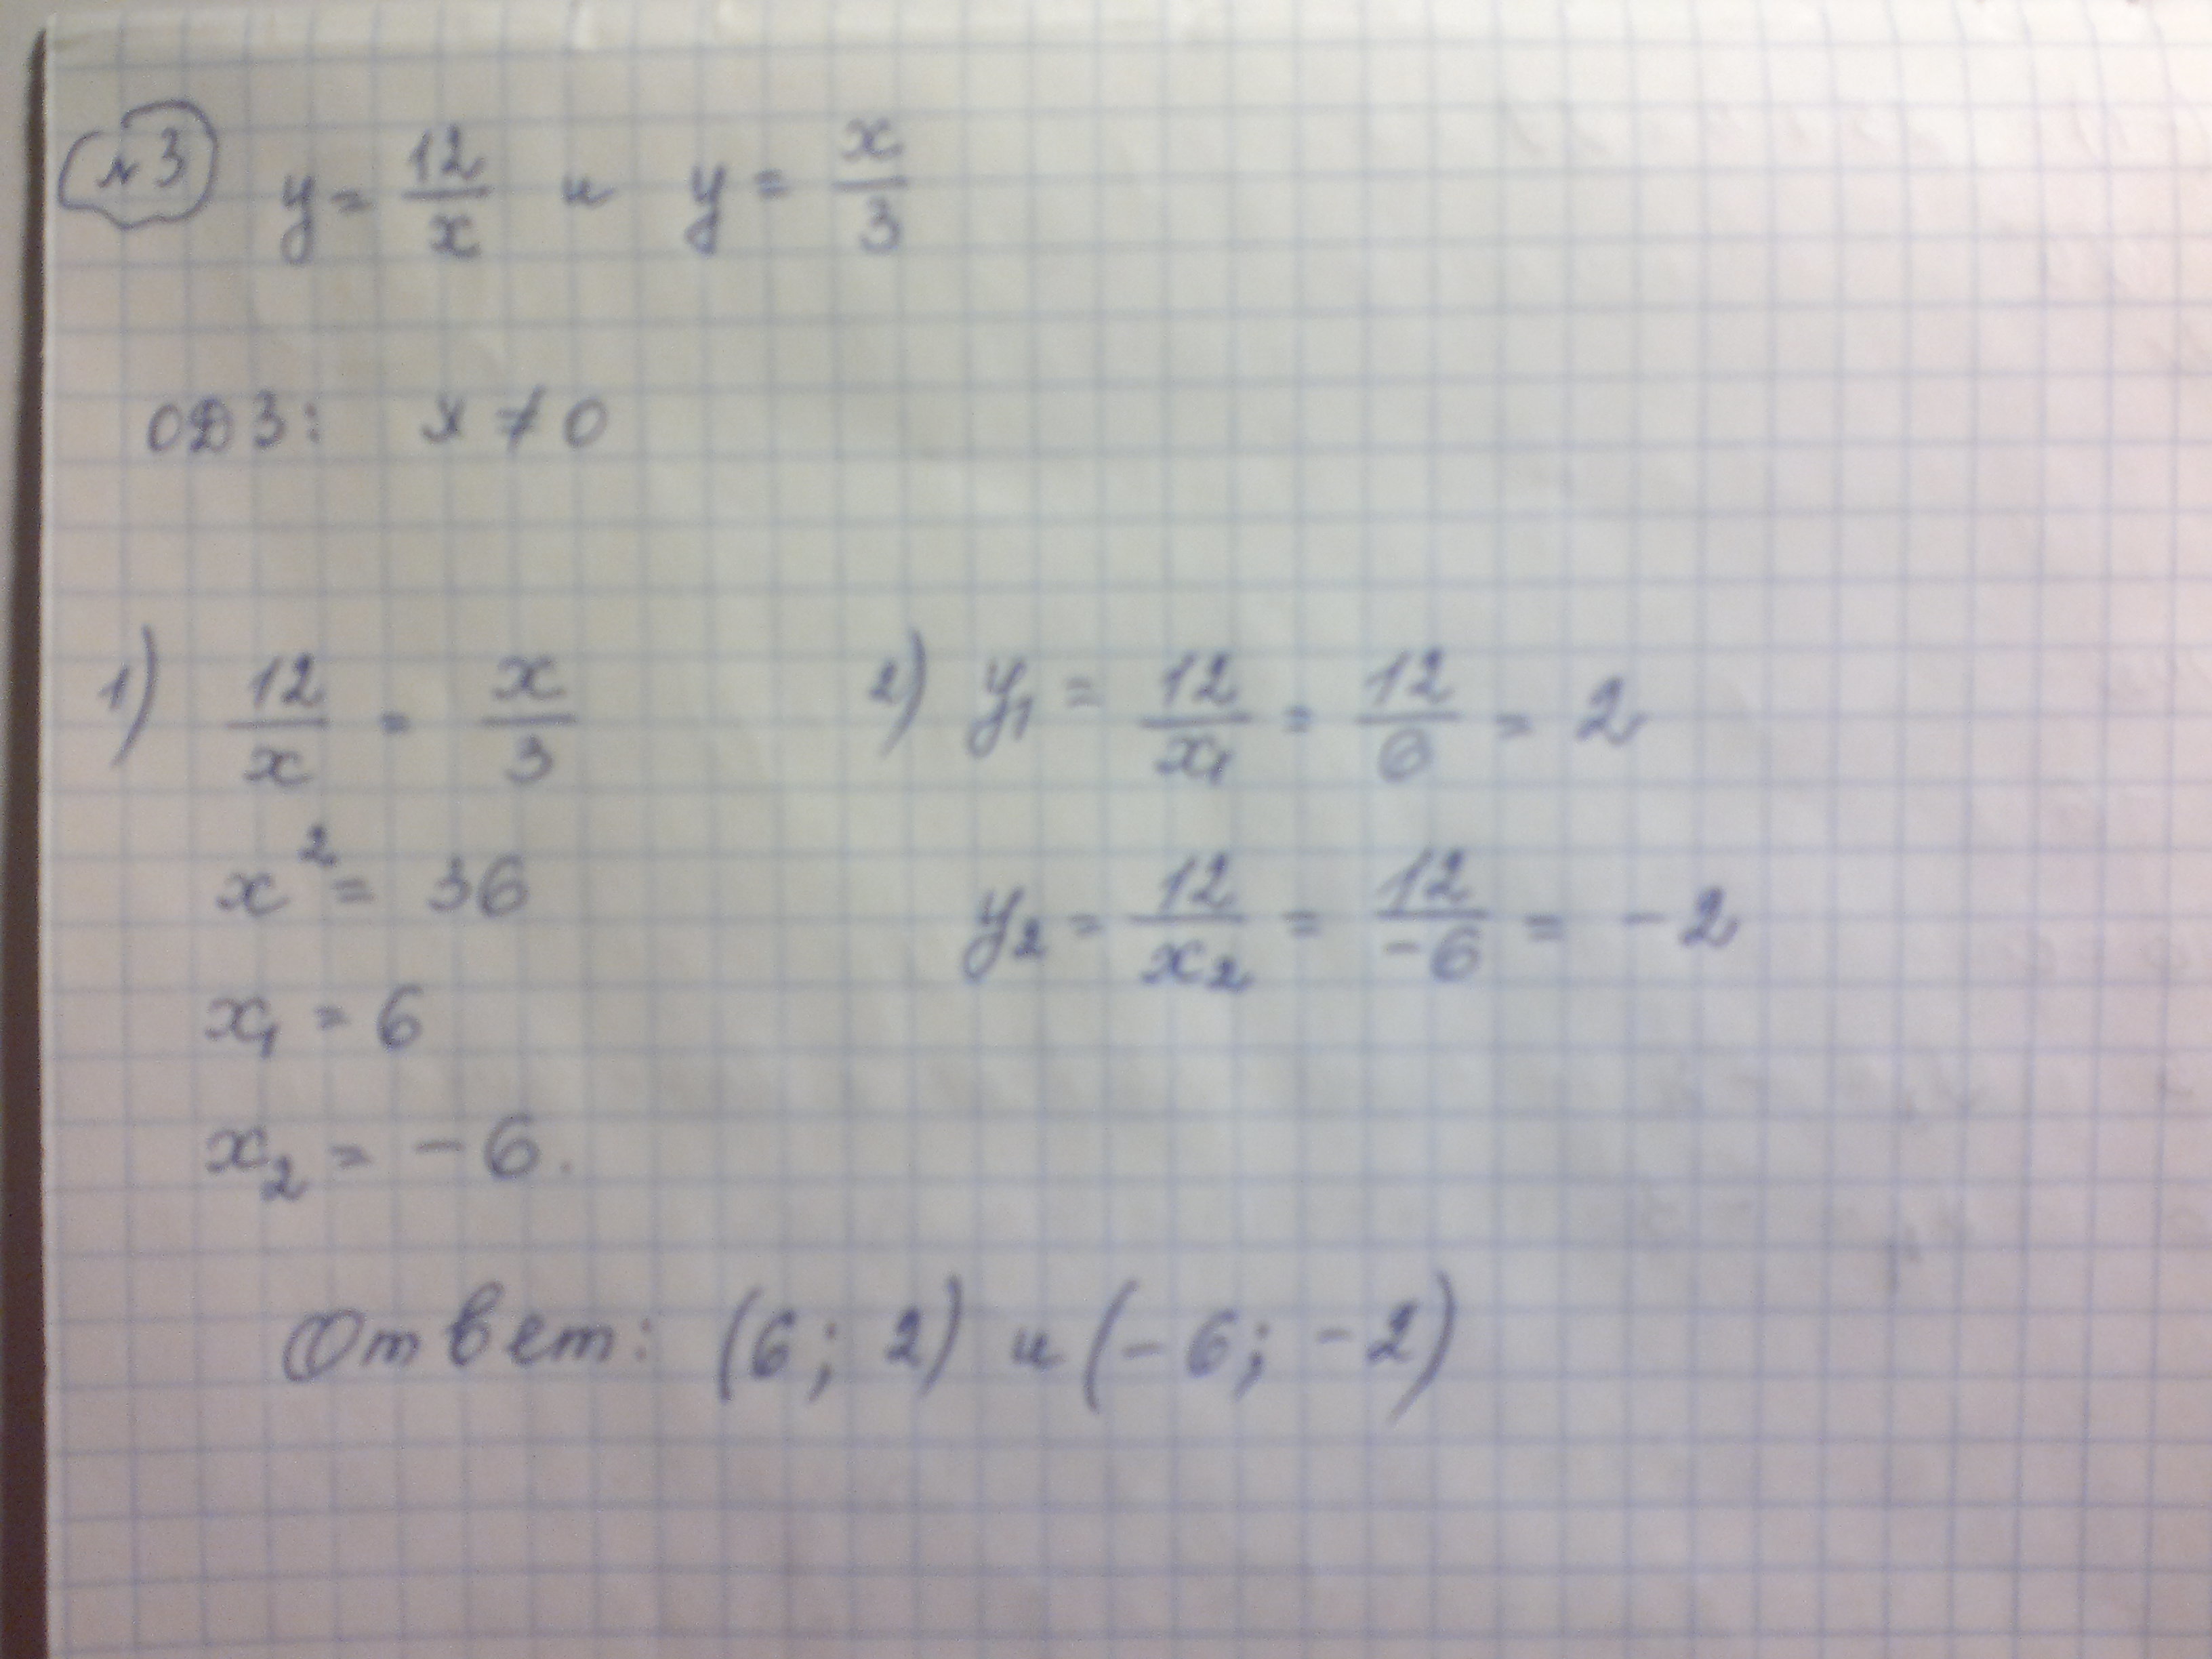 №3 y = 12/x и y = x/3
ОДЗ: x ≠ 0
1) 12/x = x/3
x² = 36
x₁ = 6
x₂ = -6.
2) y₁ = 12/x₁ = 12/6 = 2
y₂ = 12/x₂ = 12/-6 = -2
Ответ: (6; 2) и (-6; -2)